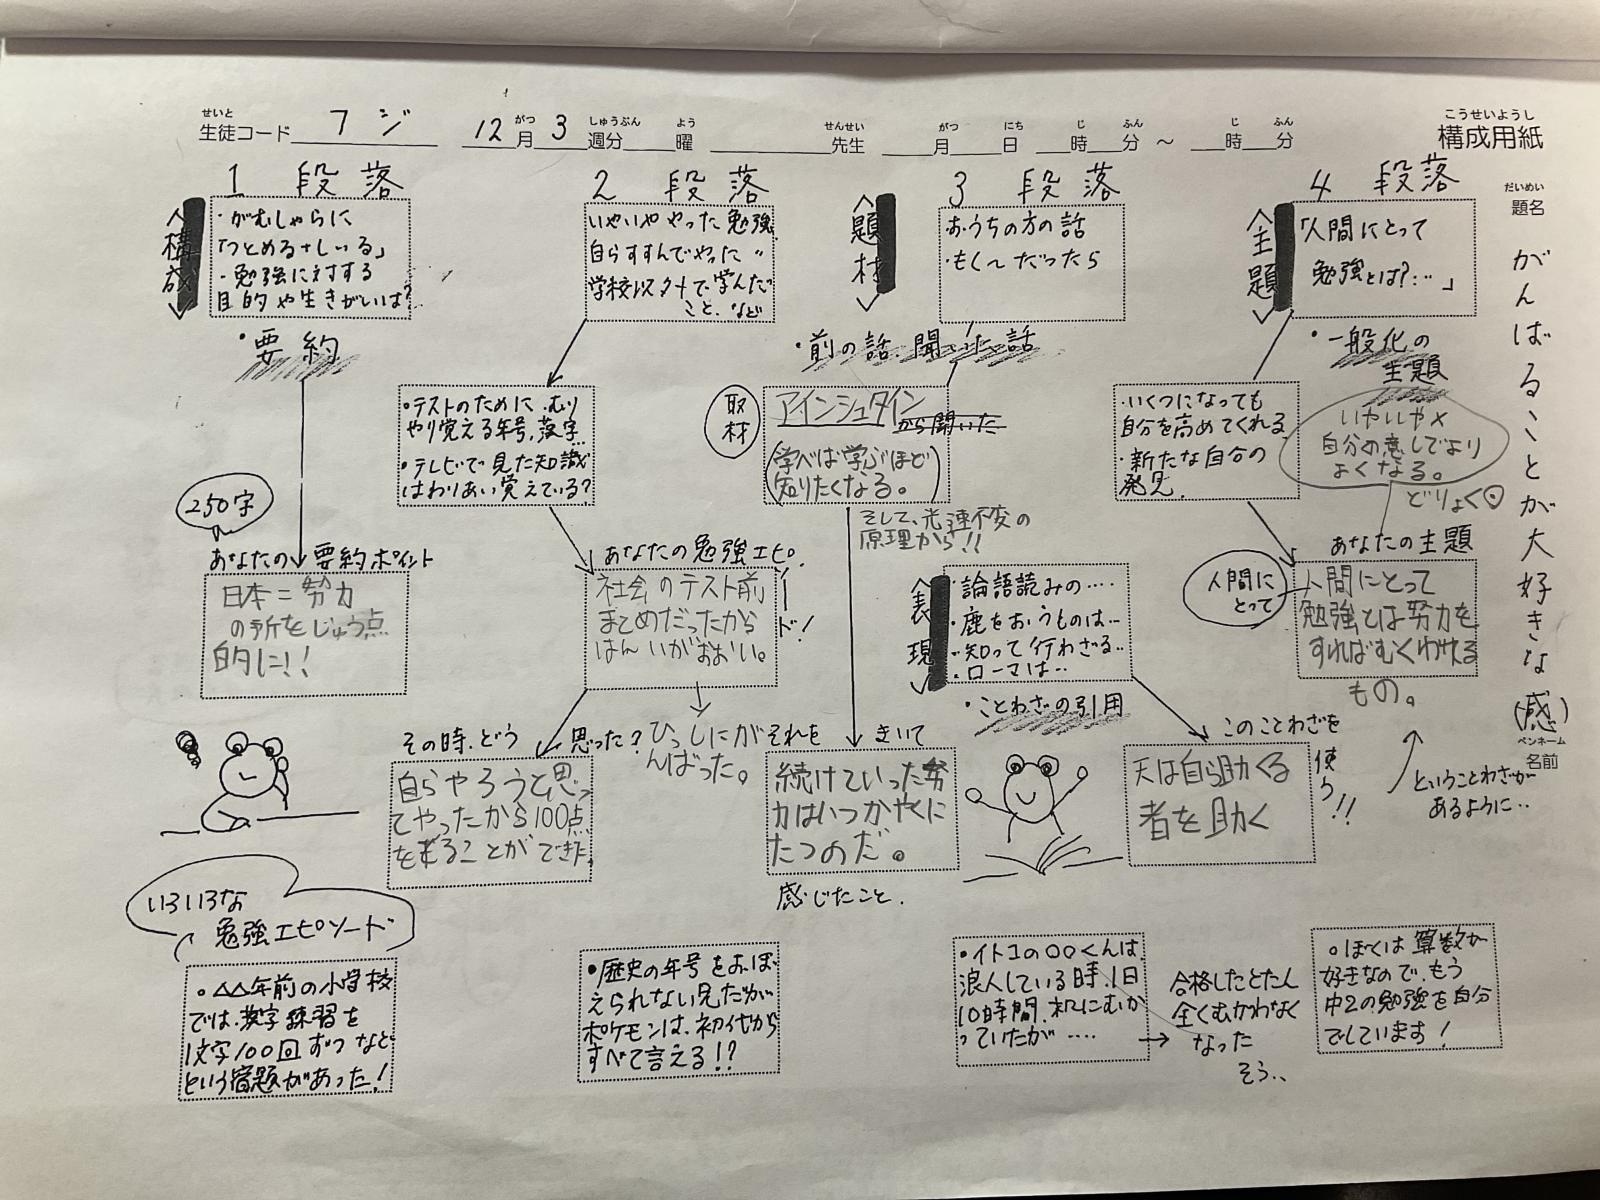 せいと
生徒コード フジ
がつ しゅうぶん よう
12月3週分 曜
せんせい
先生
がつ にち じ ふん じ ふん
月 日 時 分 ～ 時 分
こうせいようし
構成用紙
だいめい
題名
がんばることが大好きな(感)
ペンネーム
名前
1 段落
<構成>
・がむしゃらに
「つとめる+しいる」
・勉強に対する
目的や生きがいは?
・要約
250字
あなたの要約ポイント
日本=努力
の所をじゅう点
的に!!
2 段落
いやいややった勉強
自らすすんでやった 〃
学校以外で学んだ
こと、など
・テストのために、むり
やり覚える年号、漢字…
・テレビで見た知識
はわりあい覚えている?
あなたの勉強エピソード!
社会のテスト前
まとめだったから
はんいがおおい。
その時、どう思った?
ひっしにが
んばった。
自らやろうと思っ
てやったから100点
をとることができた。
3 段落
<題材>
・おうちの方の話
・もし〜だったら
・前の話、聞いた話
取材
アインシュタイン
から聞いた
(学べば学ぶほど
知りたくなる。)
そして、光速不変の
原理から!!
それを きいて
続けていった努
力はいつかやくに
たつのだ。
感じたこと.
<表現>
・論語読みの‥‥
・鹿をおうものは‥
・知って行わざる‥
・ローマは‥
・ことわざの引用
このことわざを使う!!
天は自ら助くる
者を助く
4 段落
<主題>
「人間にとって
勉強とは?‥‥」
・一般化の
主題
・いくつになっても
自分を高めてくれる
・新たな自分の
発見.
いやいや×
自分の意しでより
よくなる。
どりょく
あなたの主題
人間に
とって
人間にとって
勉強とは努力を
すればむくわれる
もの。
ということわざが
あるように‥
いろいろな
勉強エピソード
○△△年前の小学校
では、漢字練習を
1文字100回ずつなど
という宿題があった!
●歴史の年号をおぼ
えられない兄だが
ポケモンは、初代から
すべて言える!?
・イトコの○○くんは、
浪人している時、1日
10時間、机にむか
っていたが‥‥
→ 合格したとたん
全くむかわなく
なった
そう‥
○ぼくは算数が
好きなので、もう
中2の勉強を自分
でしています!